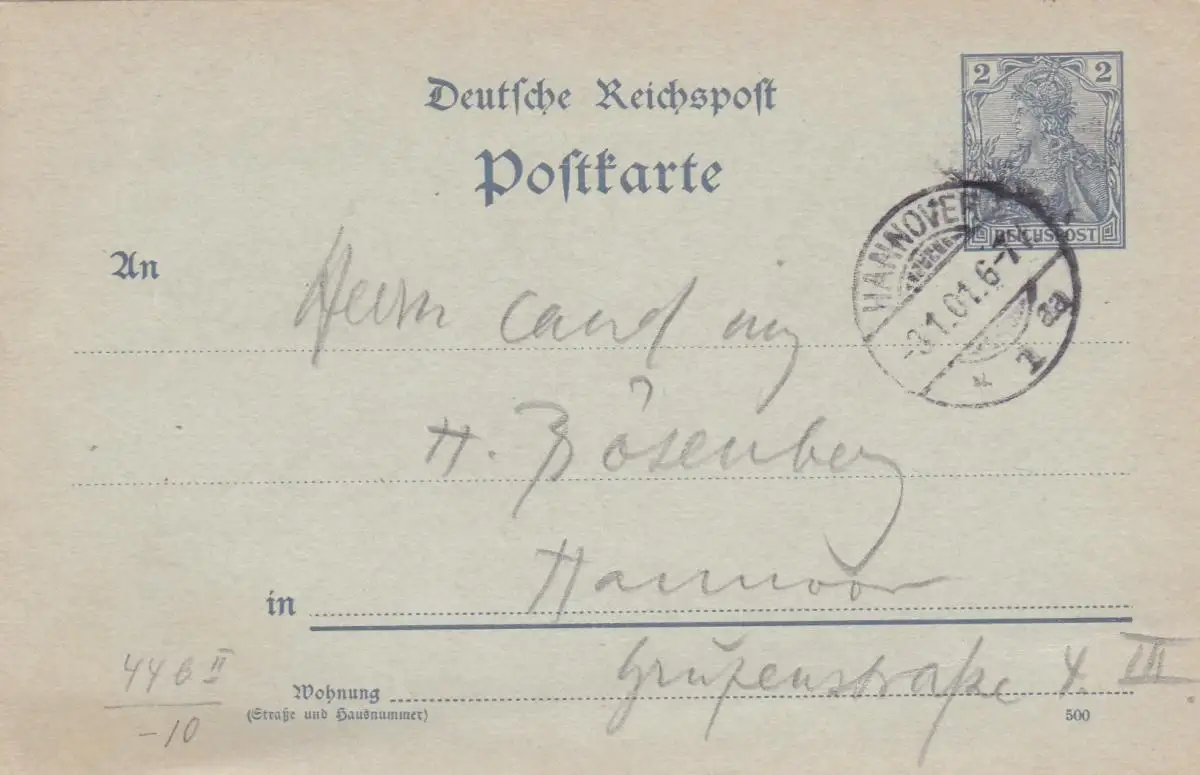 2 2
Deutsche Reichspost
Postkarte
REICHSPOST
HANNOVER
-3.1.01.6-7
1 aa
An
Herrn cand
H. Bösenberg
in Hannover
Wohnung
(Straße und Hausnummer)
Grupenstraße 4. III
500
44 b II
-10